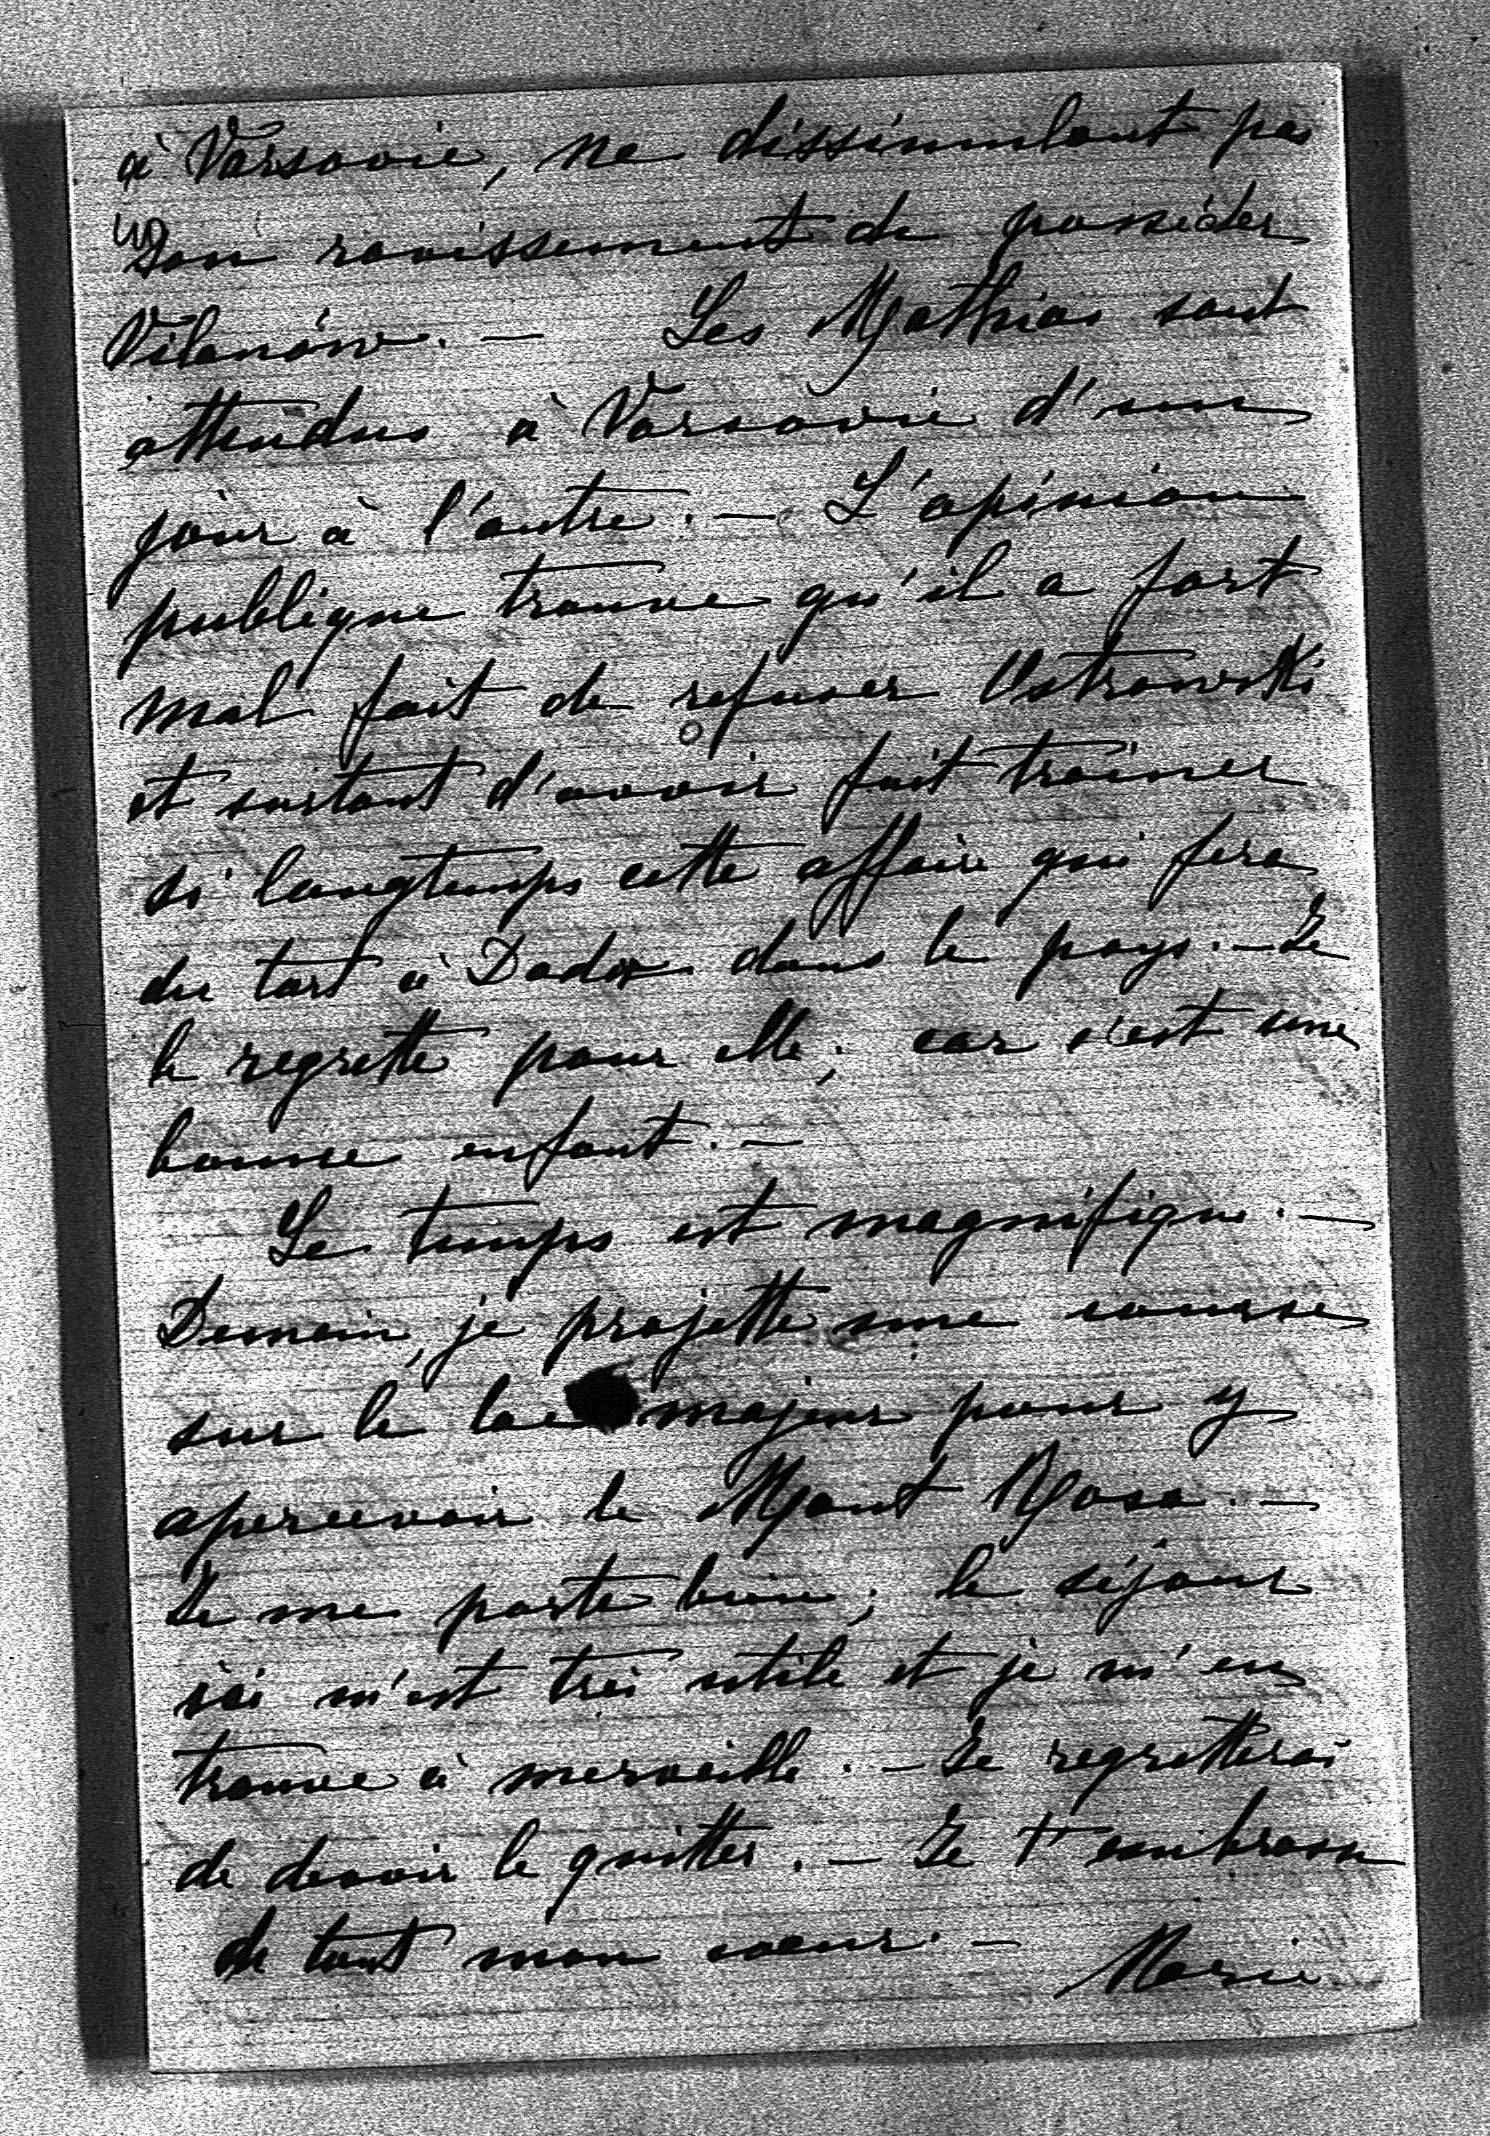 à Varsovie, ne dissimulant pas
son ravissement de posséder
Vilanów. — Les Mathias sont
attendus à Varsovie d'un
jour à l'autre. — L'opinion
publique trouve qu'il a fort
mal fait de refuser Ostrowski
et surtout d'avoir fait traîner
si longtemps cette affaire qui fera
du tort à Dada dans le pays. — Je
le regrette pour elle; car c'est une
bonne enfant. —
Le temps est magnifique. —
Demain, je projette une course
sur le lac majeur pour y
apercevoir le Mont Rosa. —
Je me porte bien; le séjour
ici m'est très utile et je m'en
trouve à merveille. — Je regretterai
de devoir le quitter. — Je t'embrasse
de tout mon coeur. — Marie